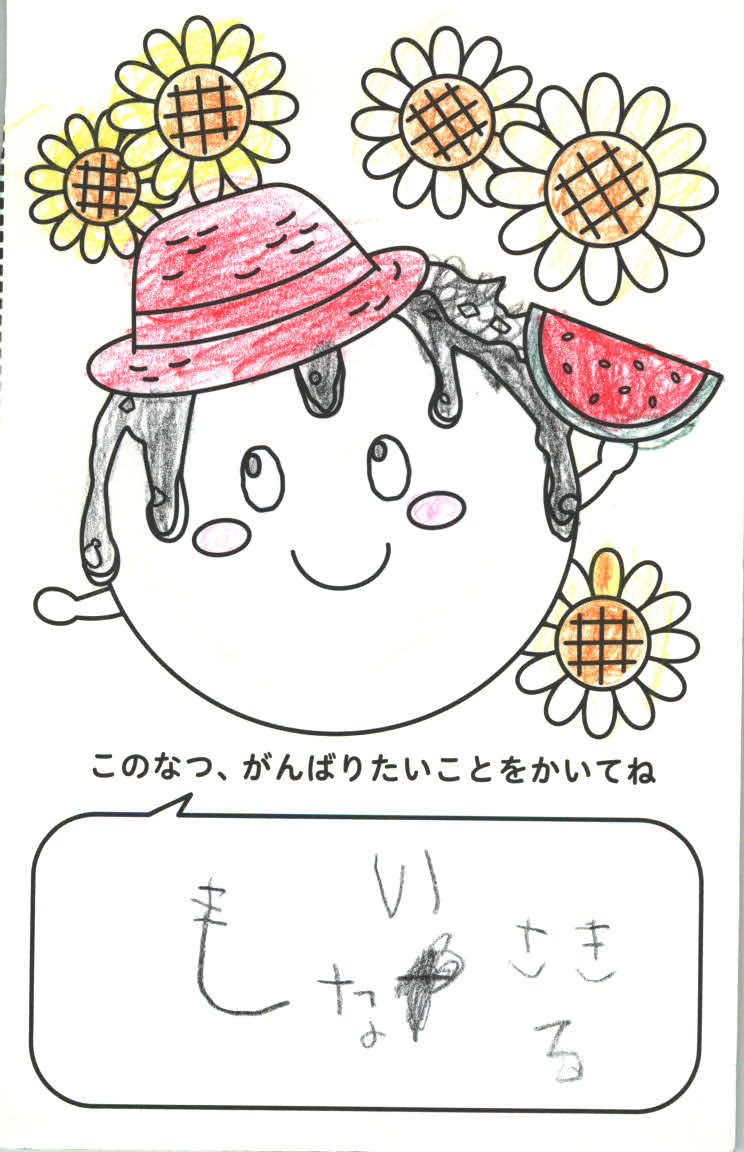 このなつ、がんばりたいことをかいてね
い
も な さ き
る